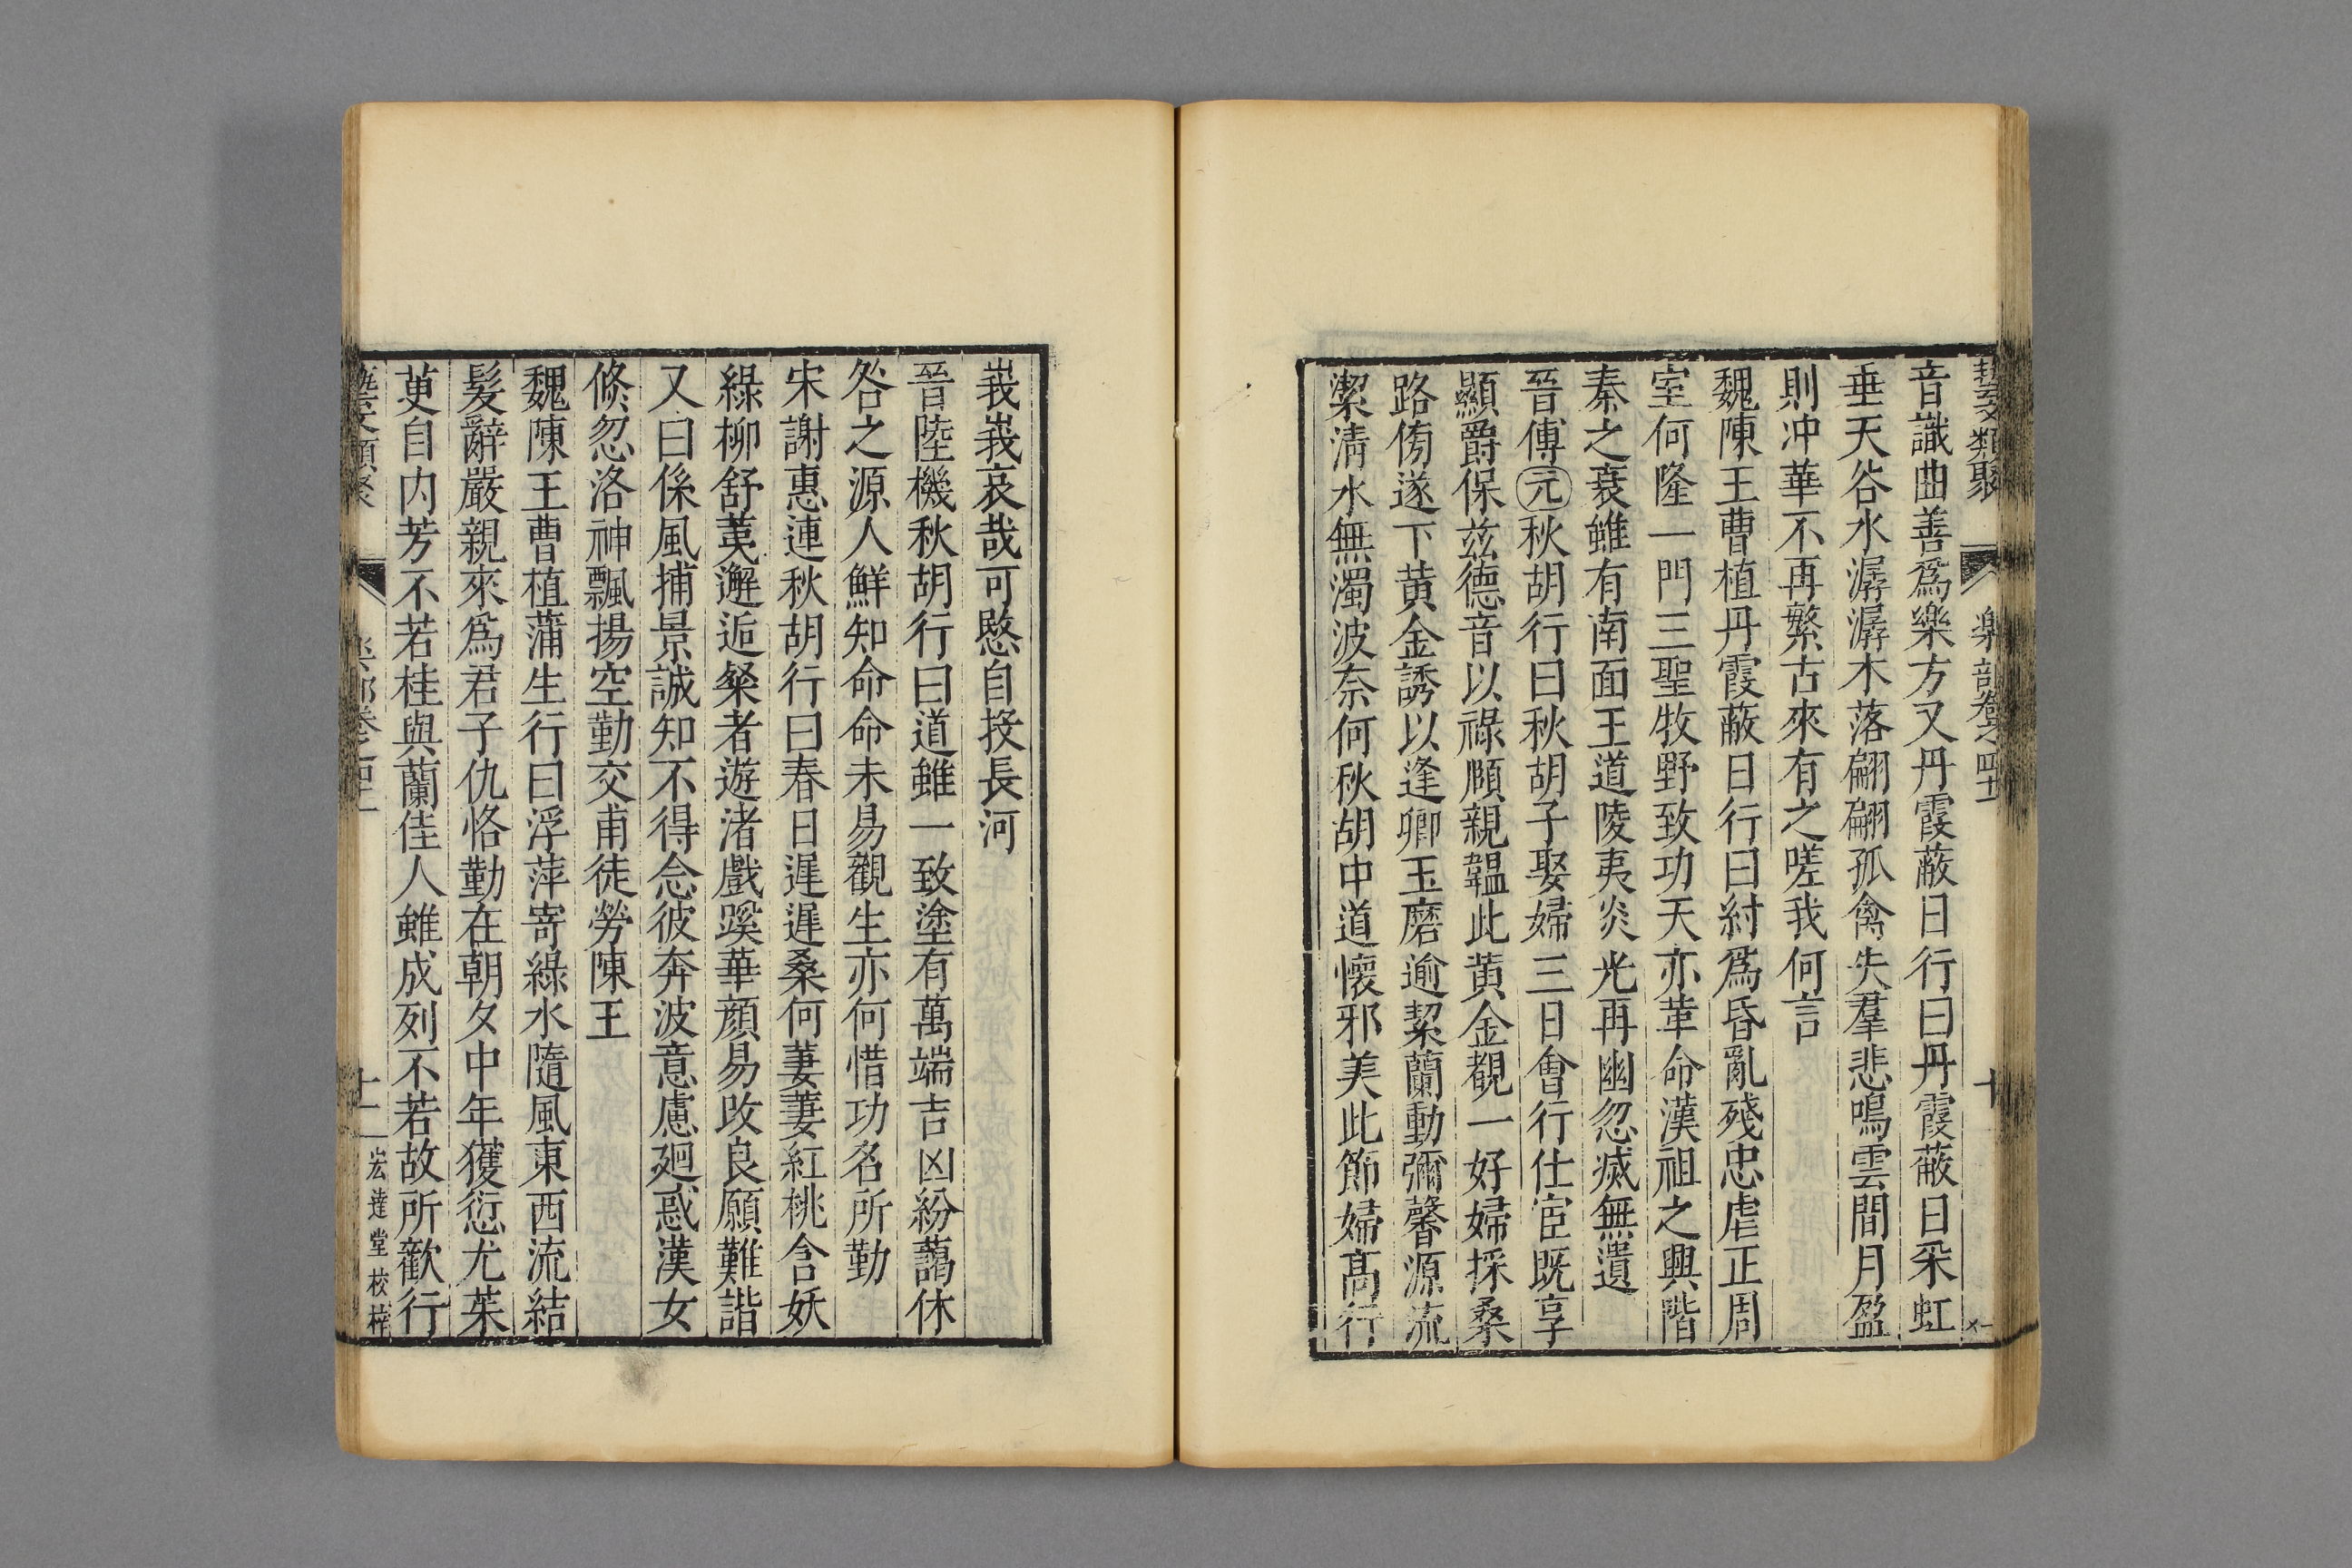 藝文類聚 樂部卷之四十一 十
音識曲善爲樂方又丹霞蔽日行曰丹霞蔽日采虹
垂天谷水潺潺木落翩翩孤禽失羣悲鳴雲間月盈
則冲華不再繁古來有之嗟我何言
魏陳王曹植丹霞蔽日行曰紂爲昏亂殘忠虐正周
室何隆一門三聖牧野致功天亦革命漢祖之興階
秦之衰雖有南面王道陵夷炎光再幽忽滅無遺
晉傅元秋胡行曰秋胡子娶婦三日會行仕宦既享
顯爵保兹德音以祿頤親韞此黃金覩一好婦採桑
路傍遂下黃金誘以逢卿玉磨逾絜蘭動彌馨源流
潔淸水無濁波奈何秋胡中道懷邪美此節婦高行
峩峩哀哉可愍自投長河
晉陸機秋胡行曰道雖一致塗有萬端吉凶紛藹休
咎之源人鮮知命命未易觀生亦何惜功名所勤
宋謝惠連秋胡行曰春日遲遲桑何萋萋紅桃含妖
綠柳舒荑邂逅粲者遊渚戲蹊華顔易改良願難諧
又曰係風捕景誠知不得念彼奔波意慮廻惑漢女
倐忽洛神飄揚空勤交甫徒勞陳王
魏陳王曹植蒲生行曰浮萍寄綠水隨風東西流結
髮辭嚴親來爲君子仇恪勤在朝夕中年獲愆尤茱
萸自內芳不若桂與蘭佳人雖成列不若故所歡行
藝文類聚 樂部卷之四十一 十一 宏達堂校梓